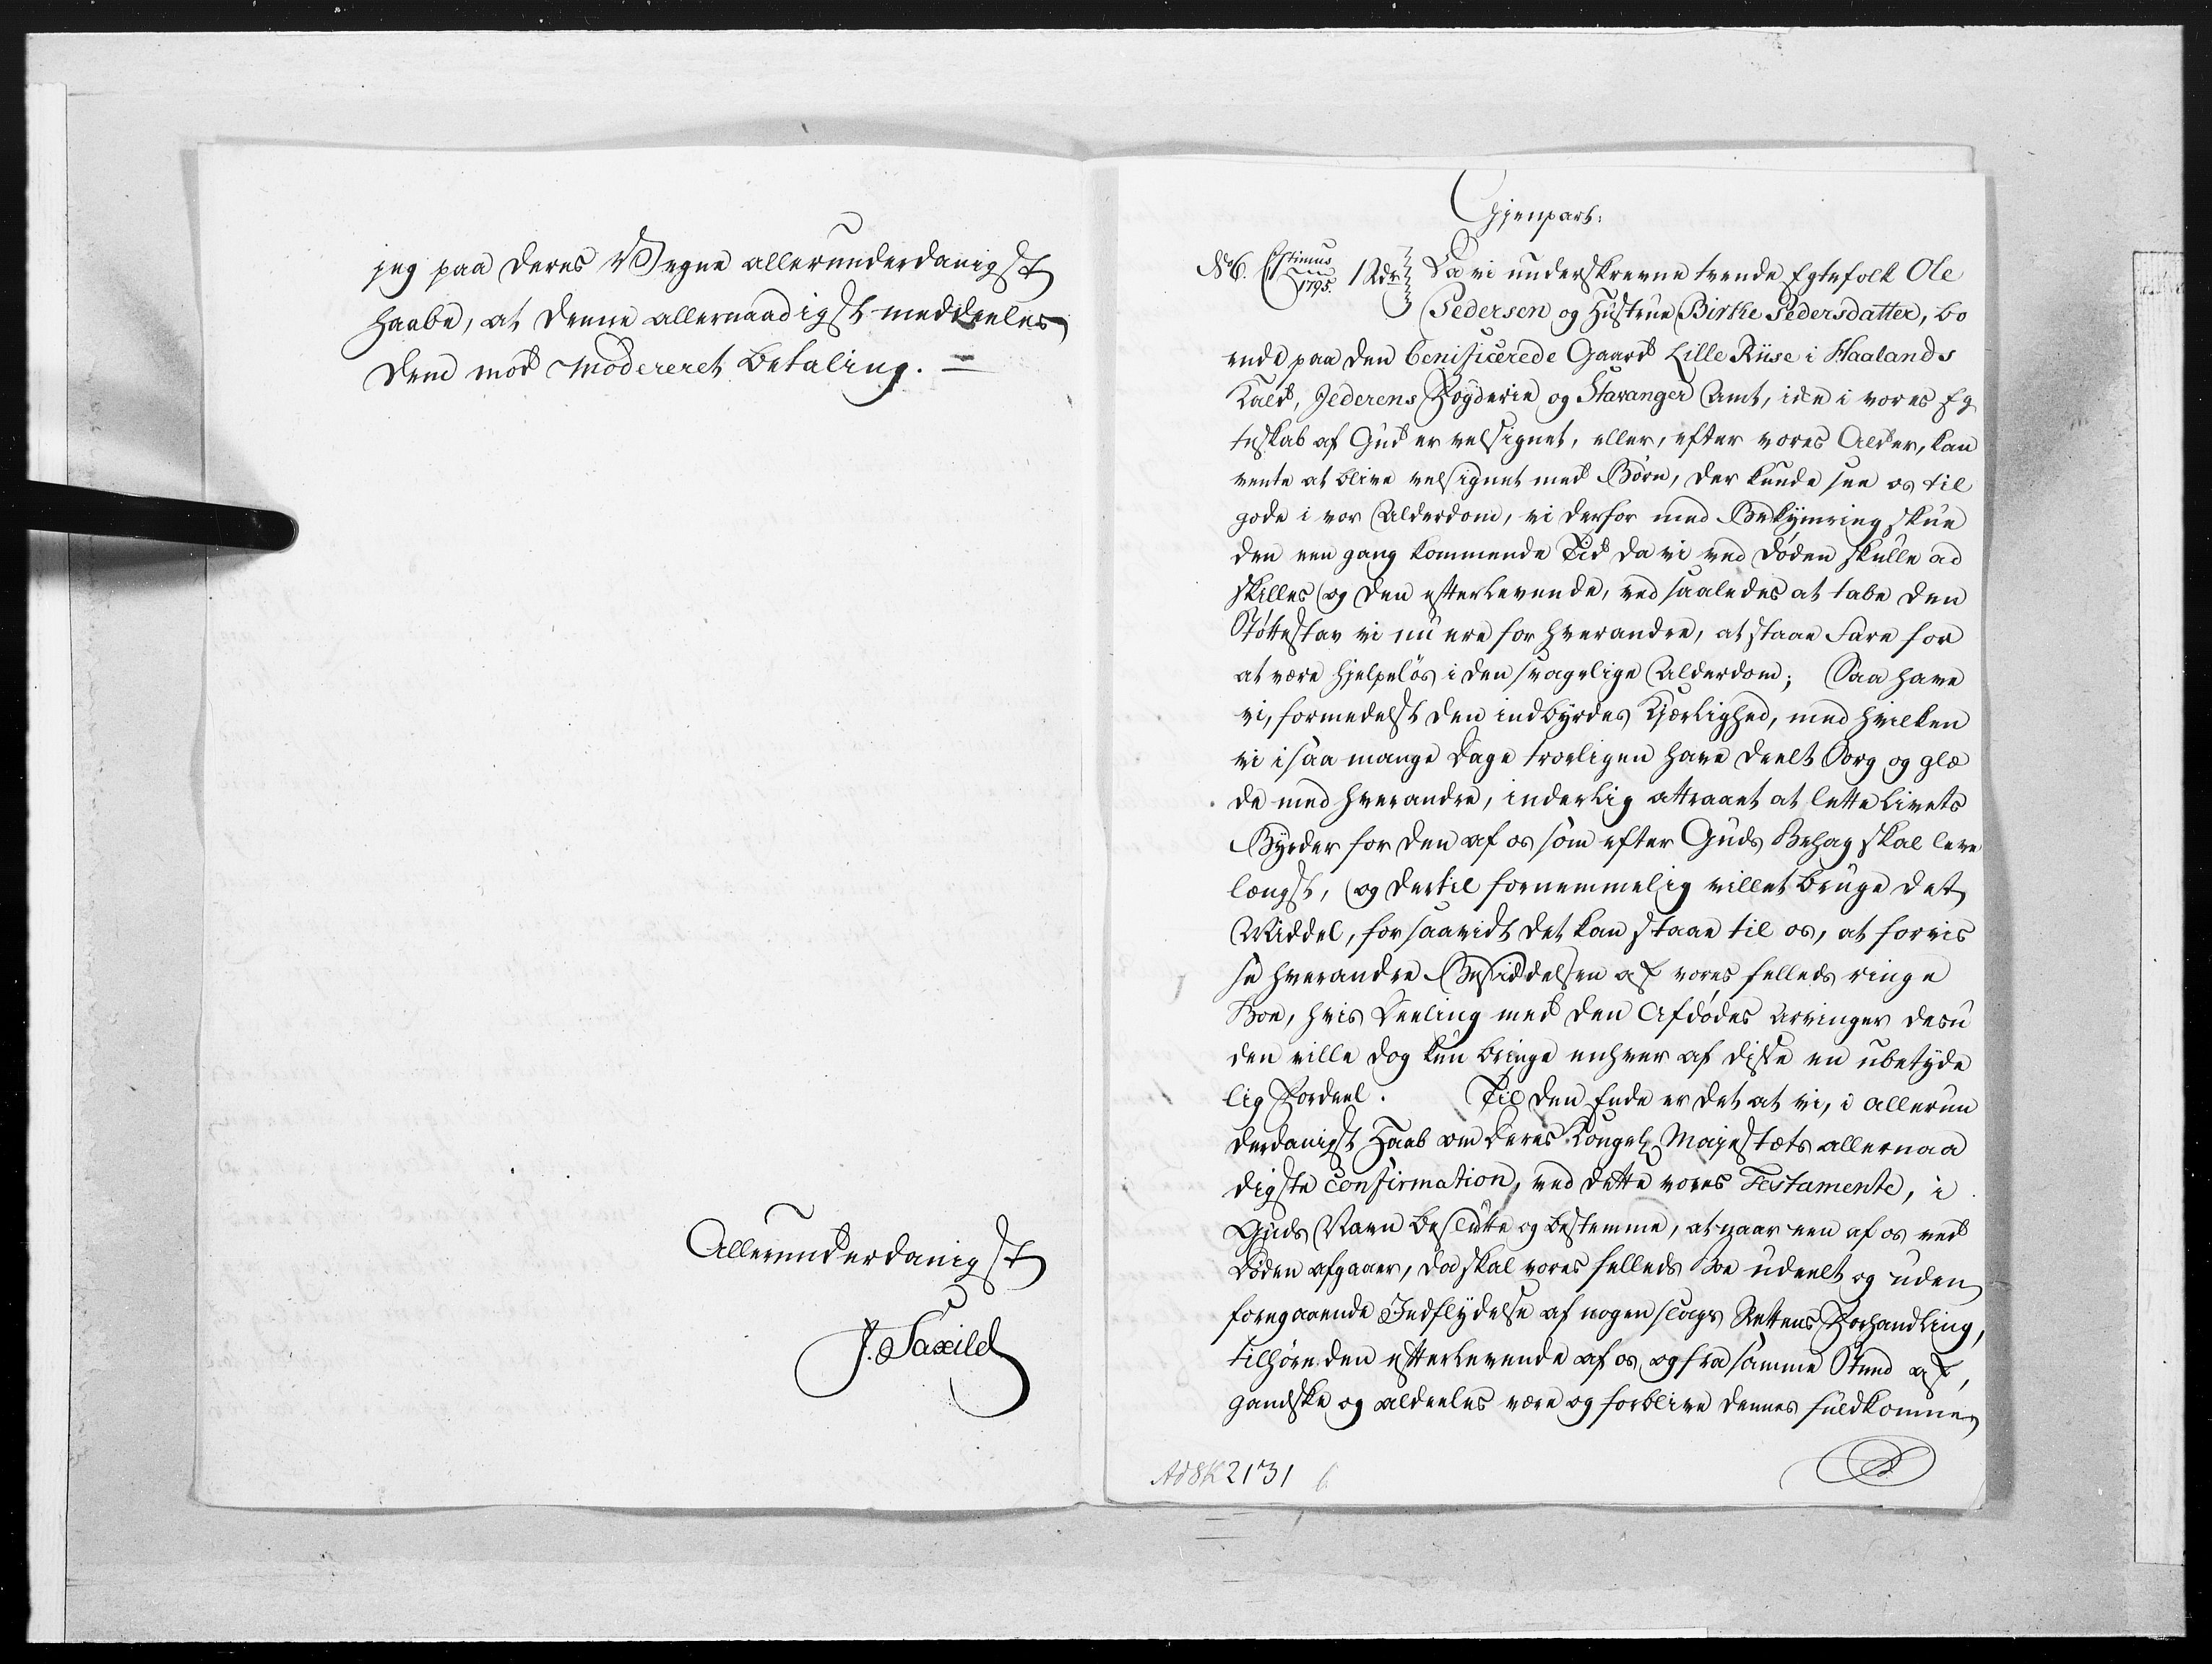 jeg paa deres Vegne allerunderdanigst
haabe, at denne allernaadigst meddeeles
dem mod modereret Betaling. =
Allerunderdanigst
J. Saxild
Gjenpart:
No 6. 1 Rdr. Da vi underskrevne tvende Egtefolk Ole
1795.
Pedersen og Hustrue Birthe Pedersdatter, bo
ende paa den beneficerede Gaard Lille Riise i Haalands
Kald, Jederens Fogderie og Stavanger Amt, icke i vores Eg
teskab af Gud er velsignet, eller, efter vores Alder, kan
vente at blive velsignet med Børn, der kunde see os til
gode i vor Alderdom, vi derfor med Bekymring skue
den een gang kommende Tid da vi ved Døden skulle ad
skilles og den efterlevende, ved saaledes at tabe den
Støttestav vi nu ere for hverandre, at staae Fare for
at være hjelpeløs i den svagelige Alderdom; Saa have
vi, formedelst den indbyrdes Kjærlighed, med hvilken
vi i saa mange Dage troeligen have deelt Sorg og glæ
de med hverandre, inderlig attraaet at lette Livets
Byrder for den af os som efter Guds Behag skal leve
længst, og dertil fornemmelig villet bruge det
Middel, forsaavidt det kan staae til os, at forvis
se hverandre Besiddelsen af vores felleds ringe
Boe, hvis Deeling med den Afdødes Arvinger desu
den ville dog kun bringe enhver af disse en ubetyde
lig Fordeel. Til den Ende er det at vi, i allerun
derdanigst Haab om Deres Kongel. Majestæts allernaa
digste Confirmation, ved dette vores Testamente, i
Guds Navn beslutte og bestemme, at naar een af os ved
Døden afgaaer, da skal vores felleds Boe udeelt og uden
foregaaende Indflydelse af nogen slags Rettens Forhandling,
tilhøre den efterlevende af os og fra samme Stund af,
gandske og aldeeles være og forblive dennes fuldkomne
Ad 8K 2131 6